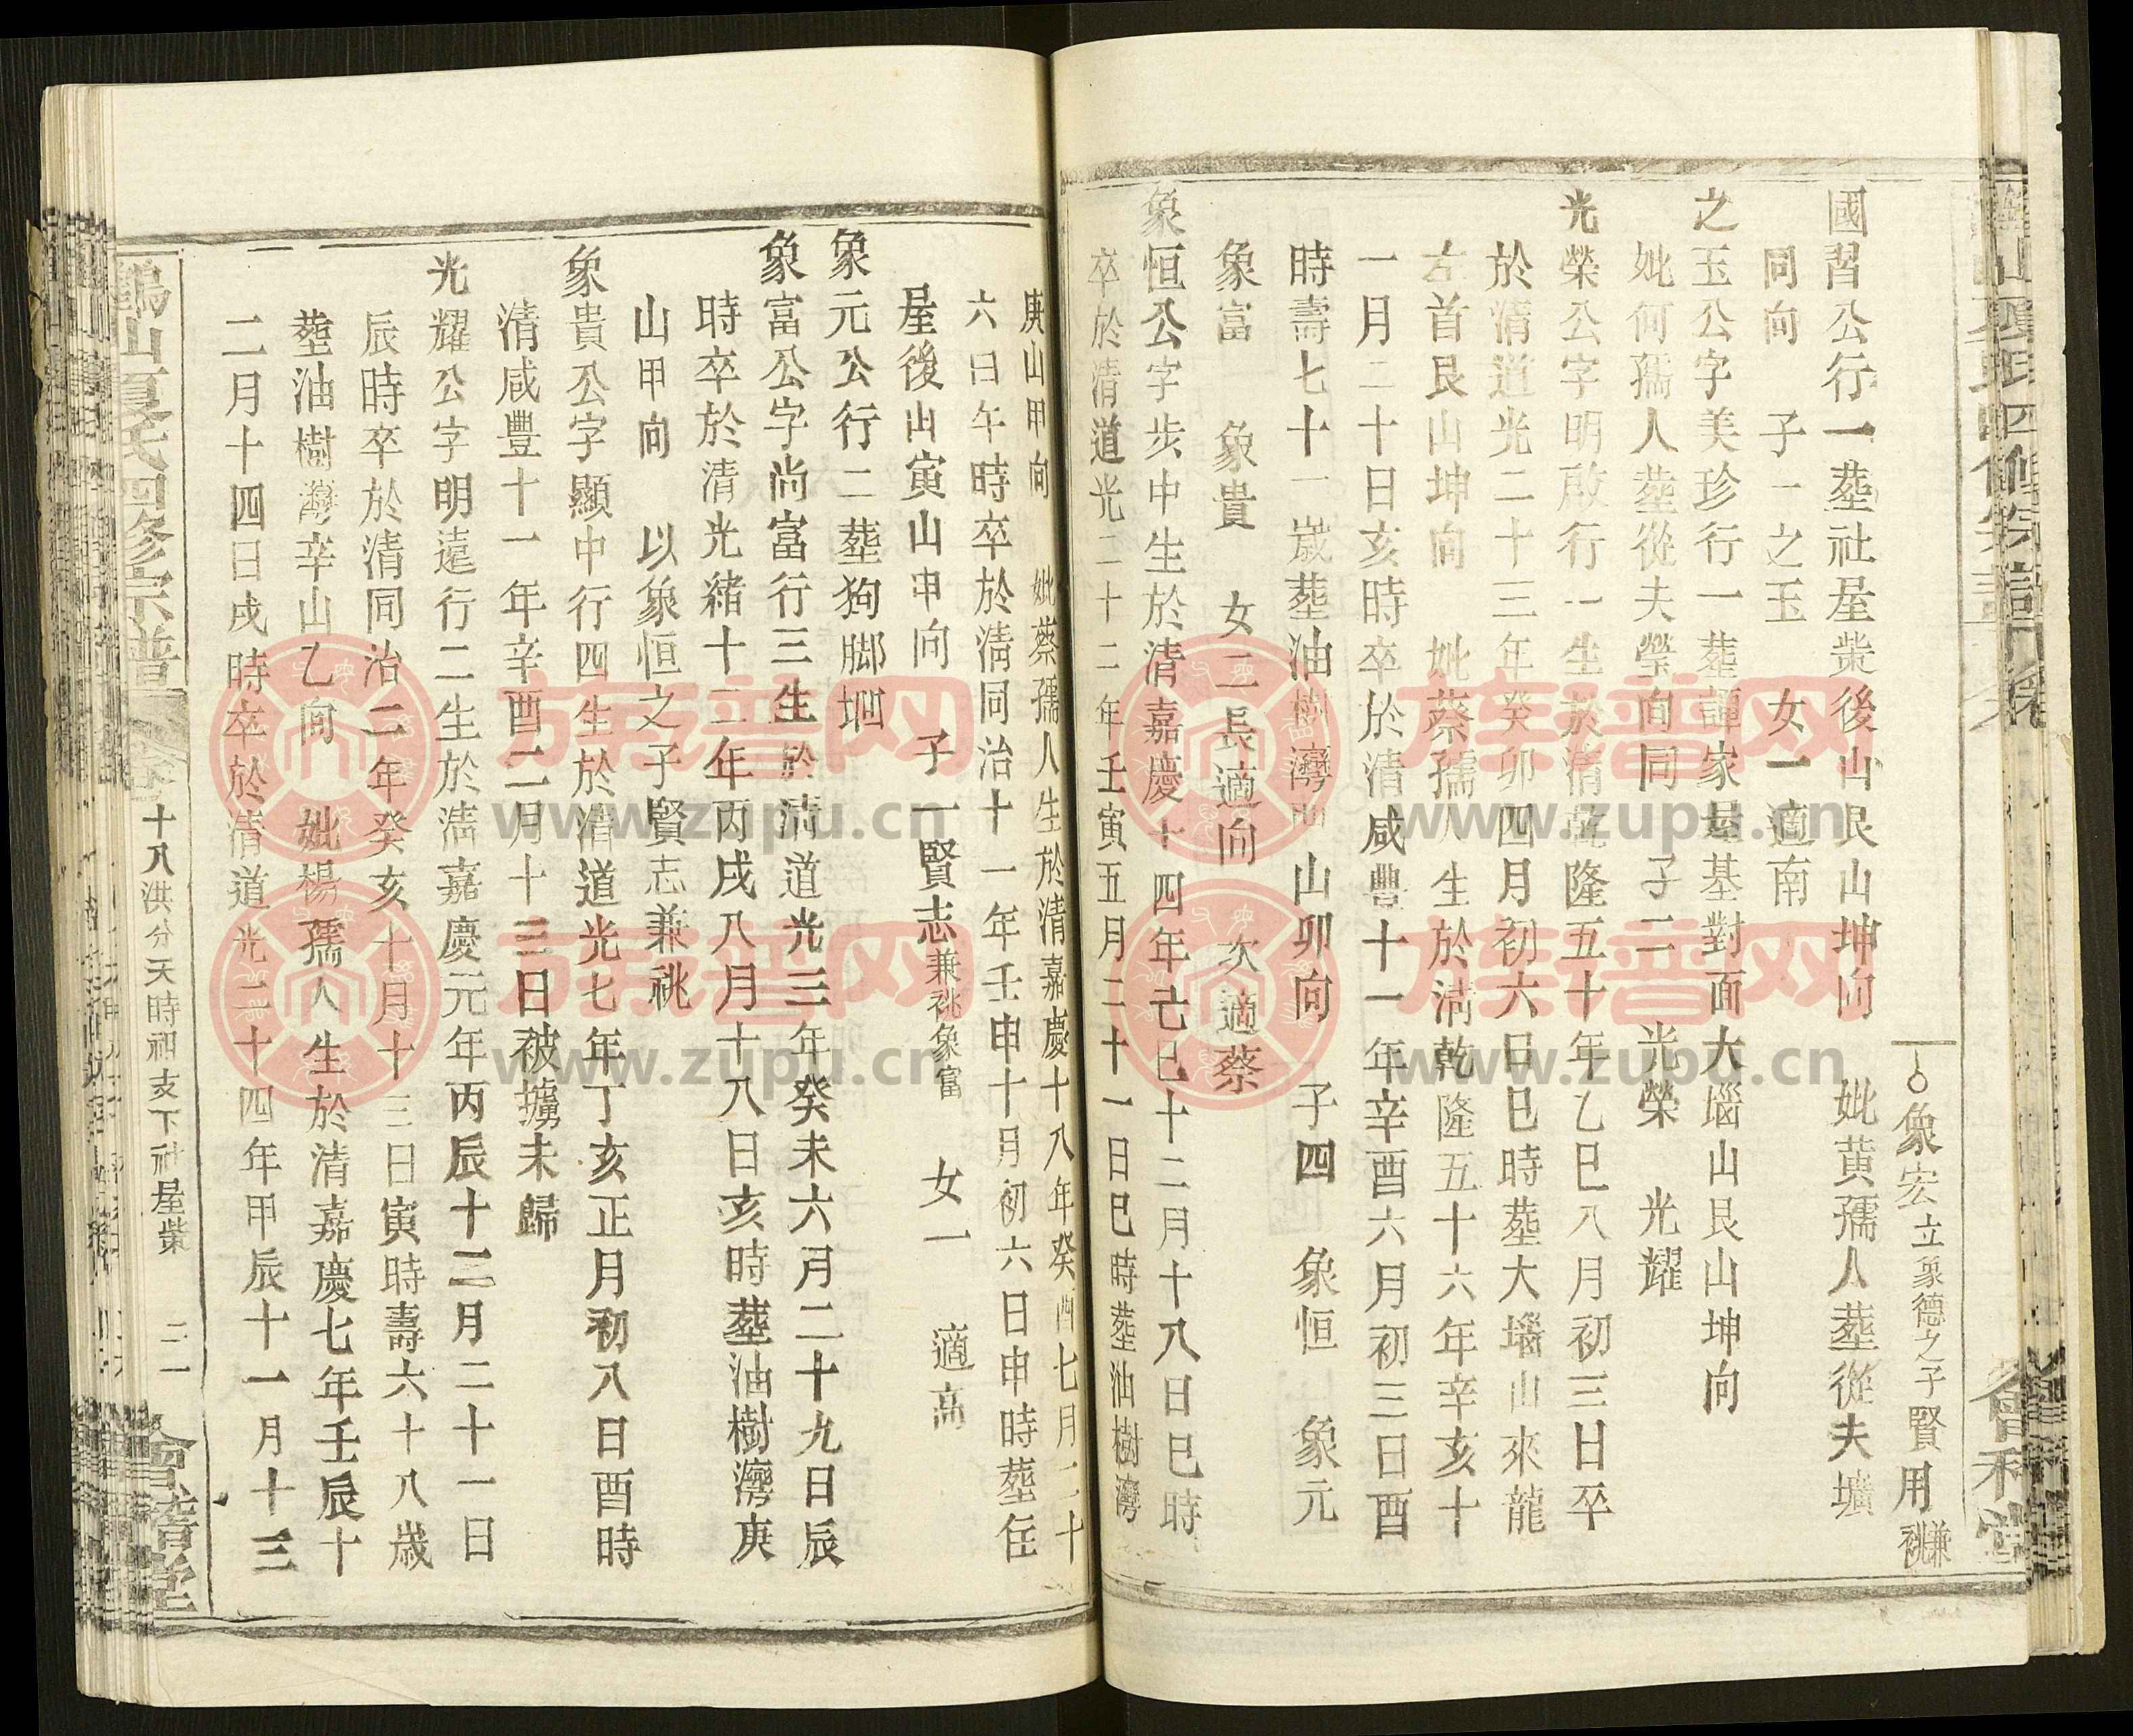 象宏立象德之子賢用兼祧
國習公行一塟社屋柴後山艮山坤向 妣黄孺人塟從夫壙
同向 子一之玉 女一適南
之玉公字美珍行一塟譚家屋基對面大堖山艮山坤向
妣何孺人塟從夫塋向同 子二 光榮 光耀
光榮公字明啟行一生於清乾隆五十年乙巳八月初三日卒
於清道光二十三年癸卯四月初六日巳時塟大堖山來龍
左首艮山坤向 妣蔡孺人生於清乾隆五十六年辛亥十
一月二十日亥時卒於清咸豐十一年辛酉六月初三日酉
時壽七十一嵗塟油樹灣 山卯向 子四 象恒 象元
象富 象貴 女二長適向 次適蔡
象恒公字步中生於清嘉慶十四年己巳十二月十八日巳時
卒於清道光二十二年壬寅五月二十一日巳時塟油樹灣
庚山甲向 妣蔡孺人生於清嘉慶十八年癸酉七月二十
六日午時卒於清同治十一年壬申十月初六日申時塟住
屋後山寅山申向 子一賢志兼祧象富 女一 適高
象元公行二塟狗脚堖
象富公字尚富行三生於清道光三年癸未六月二十九日辰
時卒於清光緒十二年丙戌八月十八日亥時塟油樹灣庚
山甲向 以象恒之子賢志兼祧
象貴公字顯中行四生於清道光七年丁亥正月初八日酉時
清咸豐十一年辛酉二月十三日被擄未歸
光耀公字明遠行二生於清嘉慶元年丙辰十二月二十一日
辰時卒於清同治二年癸亥十月十三日寅時壽六十八嵗
塟油樹灣辛山乙向 妣楊孺人生於清嘉慶七年壬辰十
二月十四日戌時卒於清道光二十四年甲辰十一月十三
山夏氏四修宗譜 卷十八洪分天時祖支下社屋柴 二一 會稽堂
族谱网
www.zupu.cn
族谱网
www.zupu.cn
族谱网
www.zupu.cn
族谱网
www.zupu.cn